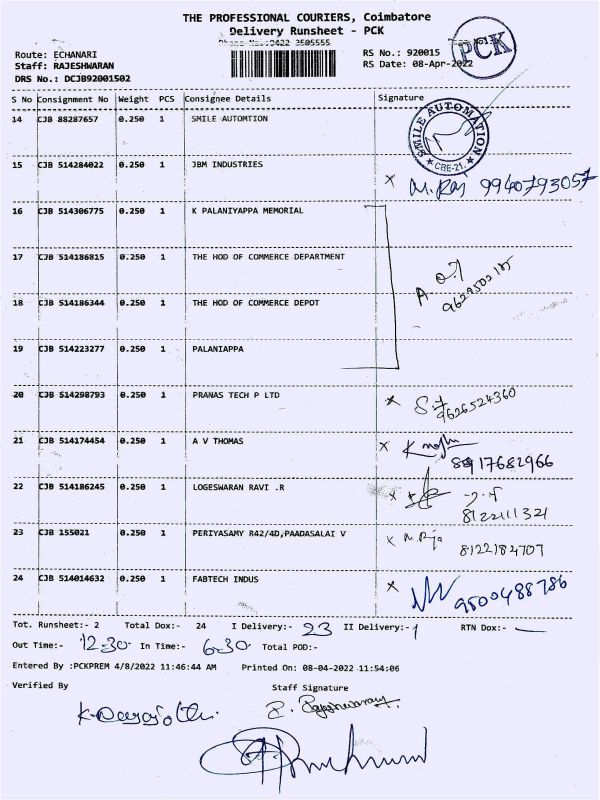 THE PROFESSIONAL COURIERS, Coimbatore
Delivery Runsheet - PCK
Phone No.:0422 3505555
Route: ECHANARI
RS No.: 920015
PCK
Staff: RAJESHWARAN
RS Date: 08-Apr-2022
DRS No.: DCJB92001502
S No Consignment No Weight PCS Consignee Details Signature
14 CJB 88287657 0.250 1 SMILE AUTOMTION
SMILE AUTOMATION
CBE-21.
15 CJB 514284022 0.250 1 JBM INDUSTRIES
x M.Raj 9940793057
16 CJB 514306775 0.250 1 K PALANIYAPPA MEMORIAL
17 CJB 514186815 0.250 1 THE HOD OF COMMERCE DEPARTMENT
18 CJB 514186344 0.250 1 THE HOD OF COMMERCE DEPOT
19 CJB 514223277 0.250 1 PALANIAPPA
20 CJB 514298793 0.250 1 PRANAS TECH P LTD
x 9626524360
21 CJB 514174454 0.250 1 A V THOMAS
x
8917682966
22 CJB 514186245 0.250 1 LOGESWARAN RAVI .R
x
8122111321
23 CJB 155021 0.250 1 PERIYASAMY R42/4D,PAADASALAI V
x M.Raja 8122184707
24 CJB 514014632 0.250 1 FABTECH INDUS
x 9500488786
Tot. Runsheet:- 2 Total Dox:- 24 I Delivery:- 23 II Delivery:- 1 RTN Dox:- —
Out Time:- 12-30 In Time:- 6-30 Total POD:-
Entered By :PCKPREM 4/8/2022 11:46:44 AM Printed On: 08-04-2022 11:54:06
Verified By Staff Signature